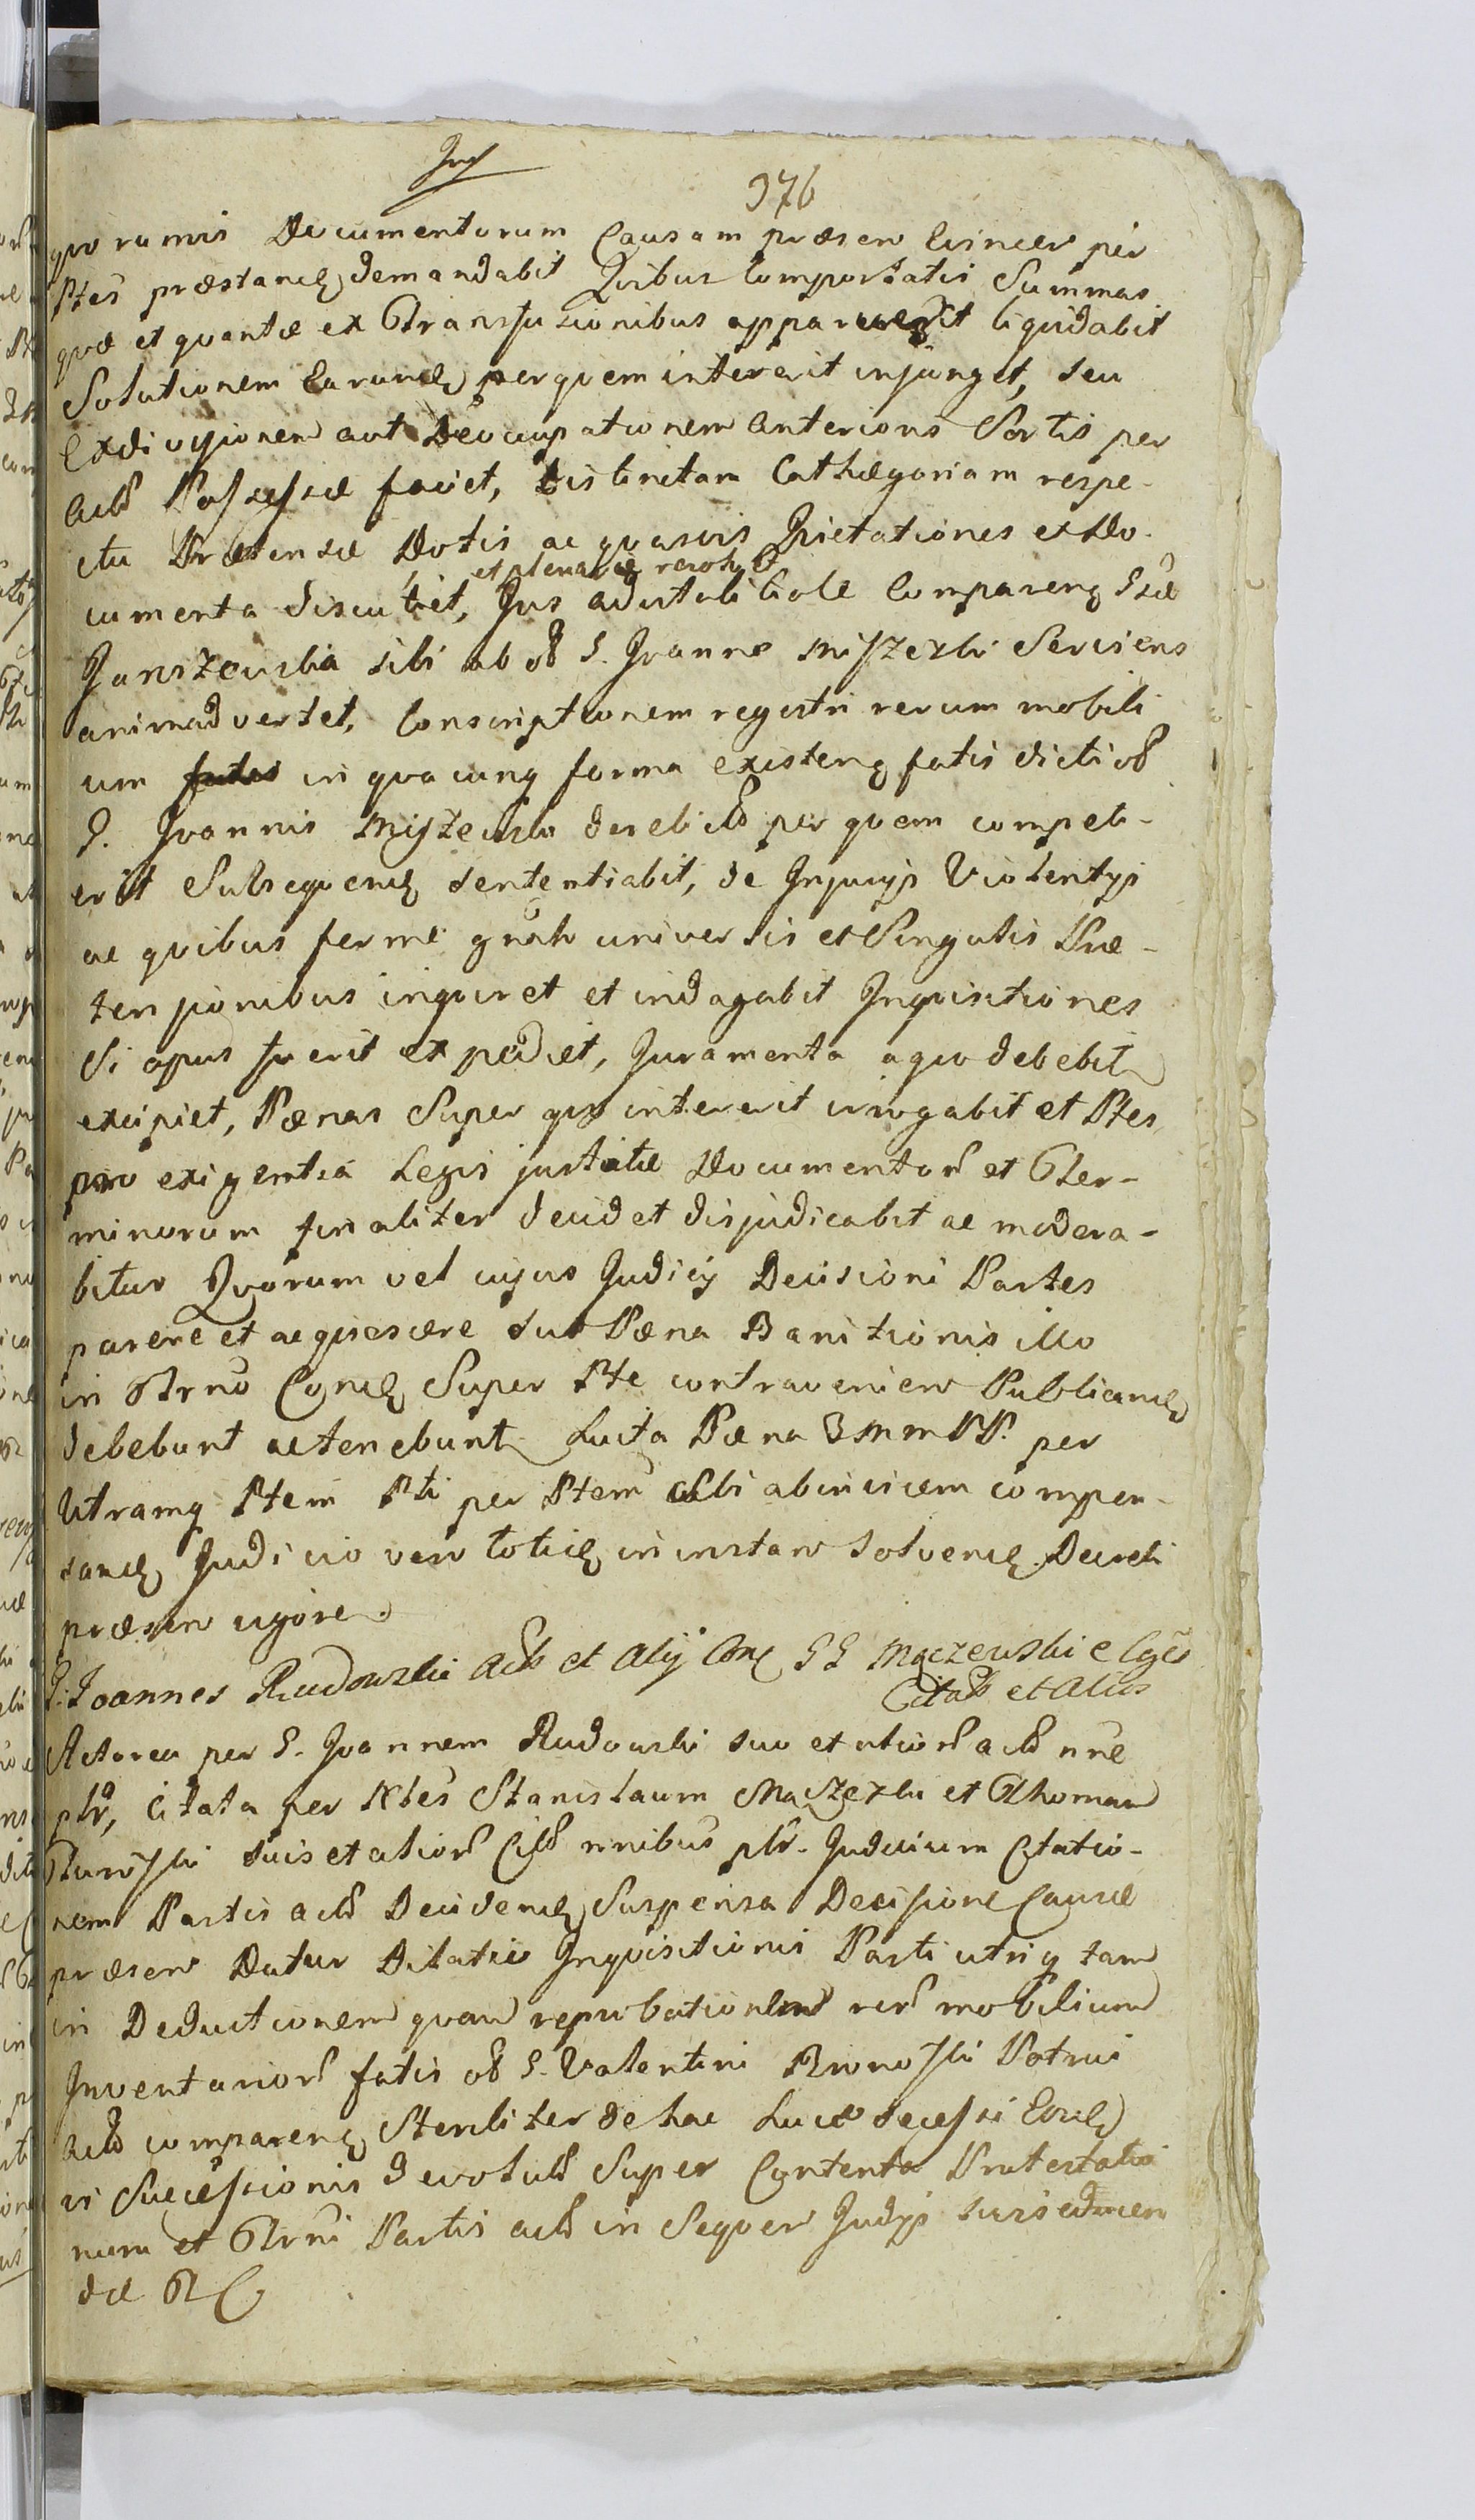 376
quoramvis Documentorum Causam præsen Evincen per
Ptes præstand demandabit Quibus Comportatis Summas
quæ et quantæ ex Transfusionibus apparuerit liquidabit
Solutionem Earund per quem intererit injunget, seu
Exdivisionem aut Deoccupationem Anterioris Sortis per
Act Possessæ faciet, distinctam Cathegoriam respe-
ctu Prætensæ Dotis ac quasvis Quietationes et Do-
et plenarie
cumenta discutiet, Jus advitalitiale Comparen Gsæ
sibi ab od G. Joanne Serviens
animadvertet, Conscriptionem regestri rerum mobili
um in quacunq forma existenq fatis dicti od
G. Joannis derelict per quem compet-
erit Subsequend sententiabit, de Injurijs Violentijs
ac quibus ferme gnãlr universis et Singulis Præ-
tensionibus inquiret et indagabit Inquisitiones
Si opus fuerit expediet, Juramenta a quo debebit
excipiet, Pænas Super quo intererit irrogabit et Ptes
pro exigentia Legis justitiæ Documentor et Ter-
minorum finaliter decidet disjudicabit ac modera-
bitur Quorum vel cujus Judicij Decisioni Partes
parere et acquiescere sub Pæna Banitionis illo
in Trno Concq Super Pte contravenien Publicand
debebunt ac tenebunt Luita Pæna 3 M m PP. per
Utramq Ptem Pti per Ptem Sibi ab invicem compen-
sand Judicio vero toties in instan Solvend Decreti
præsen vigore.
G. Joannes Rudowski Act et Alij GG Maczewski e
Citat et Alios
Actorea per G. Joannem Rudowski suo et alior act nne
plr, Citata per Stanislaum et Thomam
suis et alior Citt nnibus plr. Judicium Citatio-
nem Partis act Decidend Suspensa Decisione Causæ
præsen Datur Dilatio Inquisitionis Parti utriq tam
in Deductionem quam reprobationem rer mobilium
Inventarior fatis od G. Valentini Patrui
Act comparenq Steriliter de hac Luce decessi
vi Successionis devolut Super Contenta Protestatio
num et Trni Partis act in Sequen Judijs